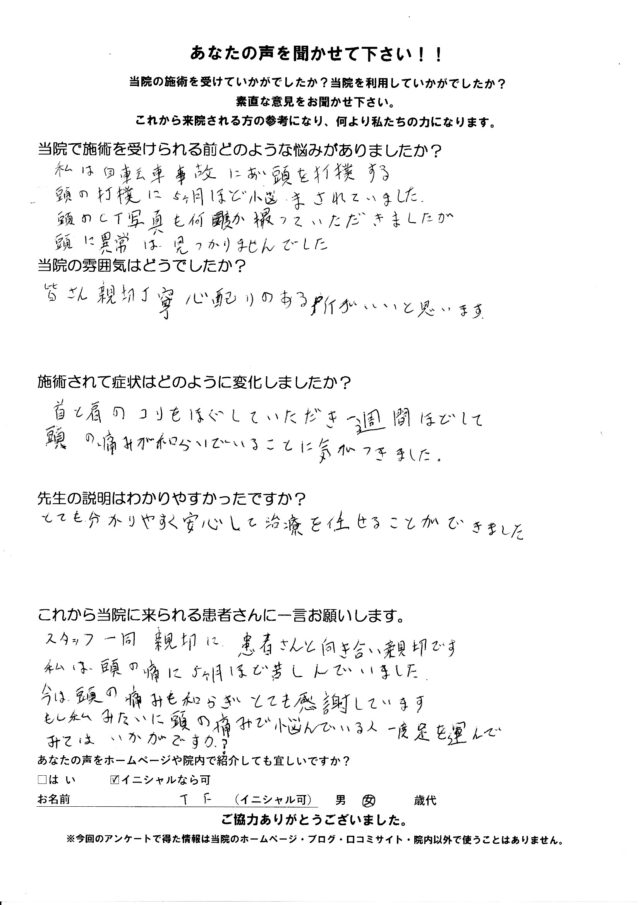 あなたの声を聞かせて下さい！！
当院の施術を受けていかがでしたか？当院を利用していかがでしたか？
素直な意見をお聞かせ下さい。
これから来院される方の参考になり、何より私たちの力になります。
当院で施術を受けられる前どのような悩みがありましたか？
私は自転車事故にあい頭を打撲する
頭の打撲に5ヶ月ほど小悩まされていました.
頭のCT写真も何度か撮っていただきましたが
頭に異常は見つかりませんでした
当院の雰囲気はどうでしたか？
皆さん親切丁寧心配りのある所がいいと思います
施術されて症状はどのように変化しましたか？
首と肩のコリをほぐしていただき一週間ほどして
頭の痛みが和らいでいることに気がつきました.
先生の説明はわかりやすかったですか？
とても分かりやすく安心して治療を任せることができました
これから当院に来られる患者さんに一言お願いします。
スタッフ一同 親切に 患者さんと向き合い親切です
私は頭の痛に5ヶ月ほど苦しんでいました.
今は頭の痛みも和らぎとても感謝しています
もし私みたいに頭の痛みで悩んでいる人一度足を運んで
みてはいかがですか?
あなたの声をホームページや院内で紹介しても宜しいですか？
□はい ☑イニシャルなら可
お名前 T F （イニシャル可） 男 女 歳代
ご協力ありがとうございました。
※今回のアンケートで得た情報は当院のホームページ・ブログ・口コミサイト・院内以外で使うことはありません。